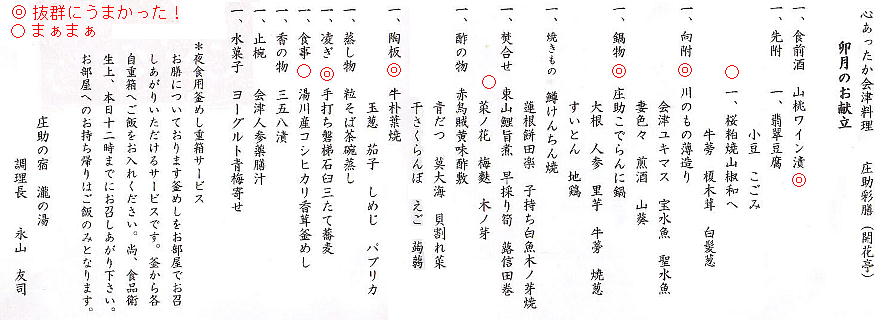 ◎ 抜群にうまかった！
○ まぁまぁ
心あったか会津料理　庄助彩膳（開花亭）
卯月のお献立
一、食前酒　山桃ワイン漬◎
一、先附　一、翡翠豆腐
小豆　こごみ
○一、桜粕焼山椒和へ
牛蒡　榎木茸　白髪葱
一、向附◎川のもの薄造り
会津ユキマス　宝水魚　聖水魚
妻色々　煎酒　山葵
一、鍋物◎庄助こでらんに鍋
大根　人参　里芋　牛蒡　焼葱
すいとん　地鶏
一、焼きもの　鱒けんちん焼
蓮根餅田楽　子持ち白魚木ノ芽焼
一、焚合せ　東山鯉旨煮　早採り筍　蕗信田巻
○菜ノ花　梅麩　木ノ芽
一、酢の物　赤鳥賊黄味酢敷
音だつ　莫大海　貝割れ菜
干さくらんぼ　えご　蒟蒻
一、陶板◎牛朴葉焼
玉葱　茄子　しめじ　パプリカ
一、蒸し物　粒そば茶碗蒸し
一、凌ぎ◎手打ち磐梯石臼三たて蕎麦
一、食事○湯川産コシヒカリ香茸釜めし
一、香の物　三五八漬
一、止椀　会津人参薬膳汁
一、水菓子　ヨーグルト青梅寄せ
＊夜食用釜めし重箱サービス
お膳についております釜めしをお部屋でお召
しあがりいただけるサービスです。釜から各
自重箱へご飯をお入れください。尚、食品衛
生上、本日十二時までにお召しあがり下さい。
お部屋へのお持ち帰りはご飯のみとなります。
庄助の宿　瀧の湯
調理長　永山　友司